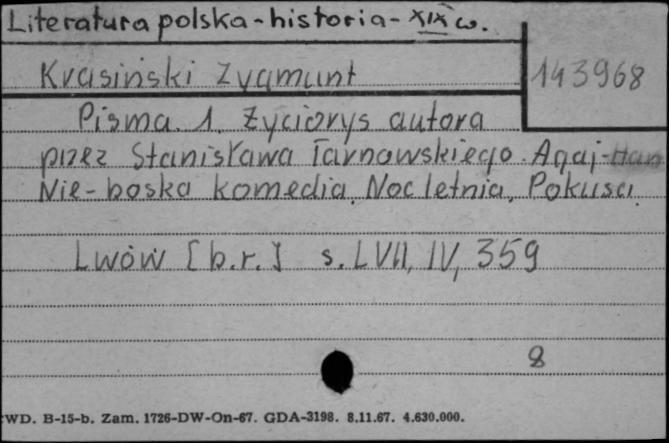 Literatura polska-historia-XIX w.
Krasiński Zygmunt 143968
Pisma. 1. Życiorys autora
przez Stanisława Tarnowskiego. Agaj-Han
Nie-boska komedia. Noc letnia. Pokusa.
Lwów [b.r.] s. LVII, IV, 359
8
WD. B-15-b. Zam. 1726-DW-On-67. GDA-3198. 8.11.67. 4.630.000.